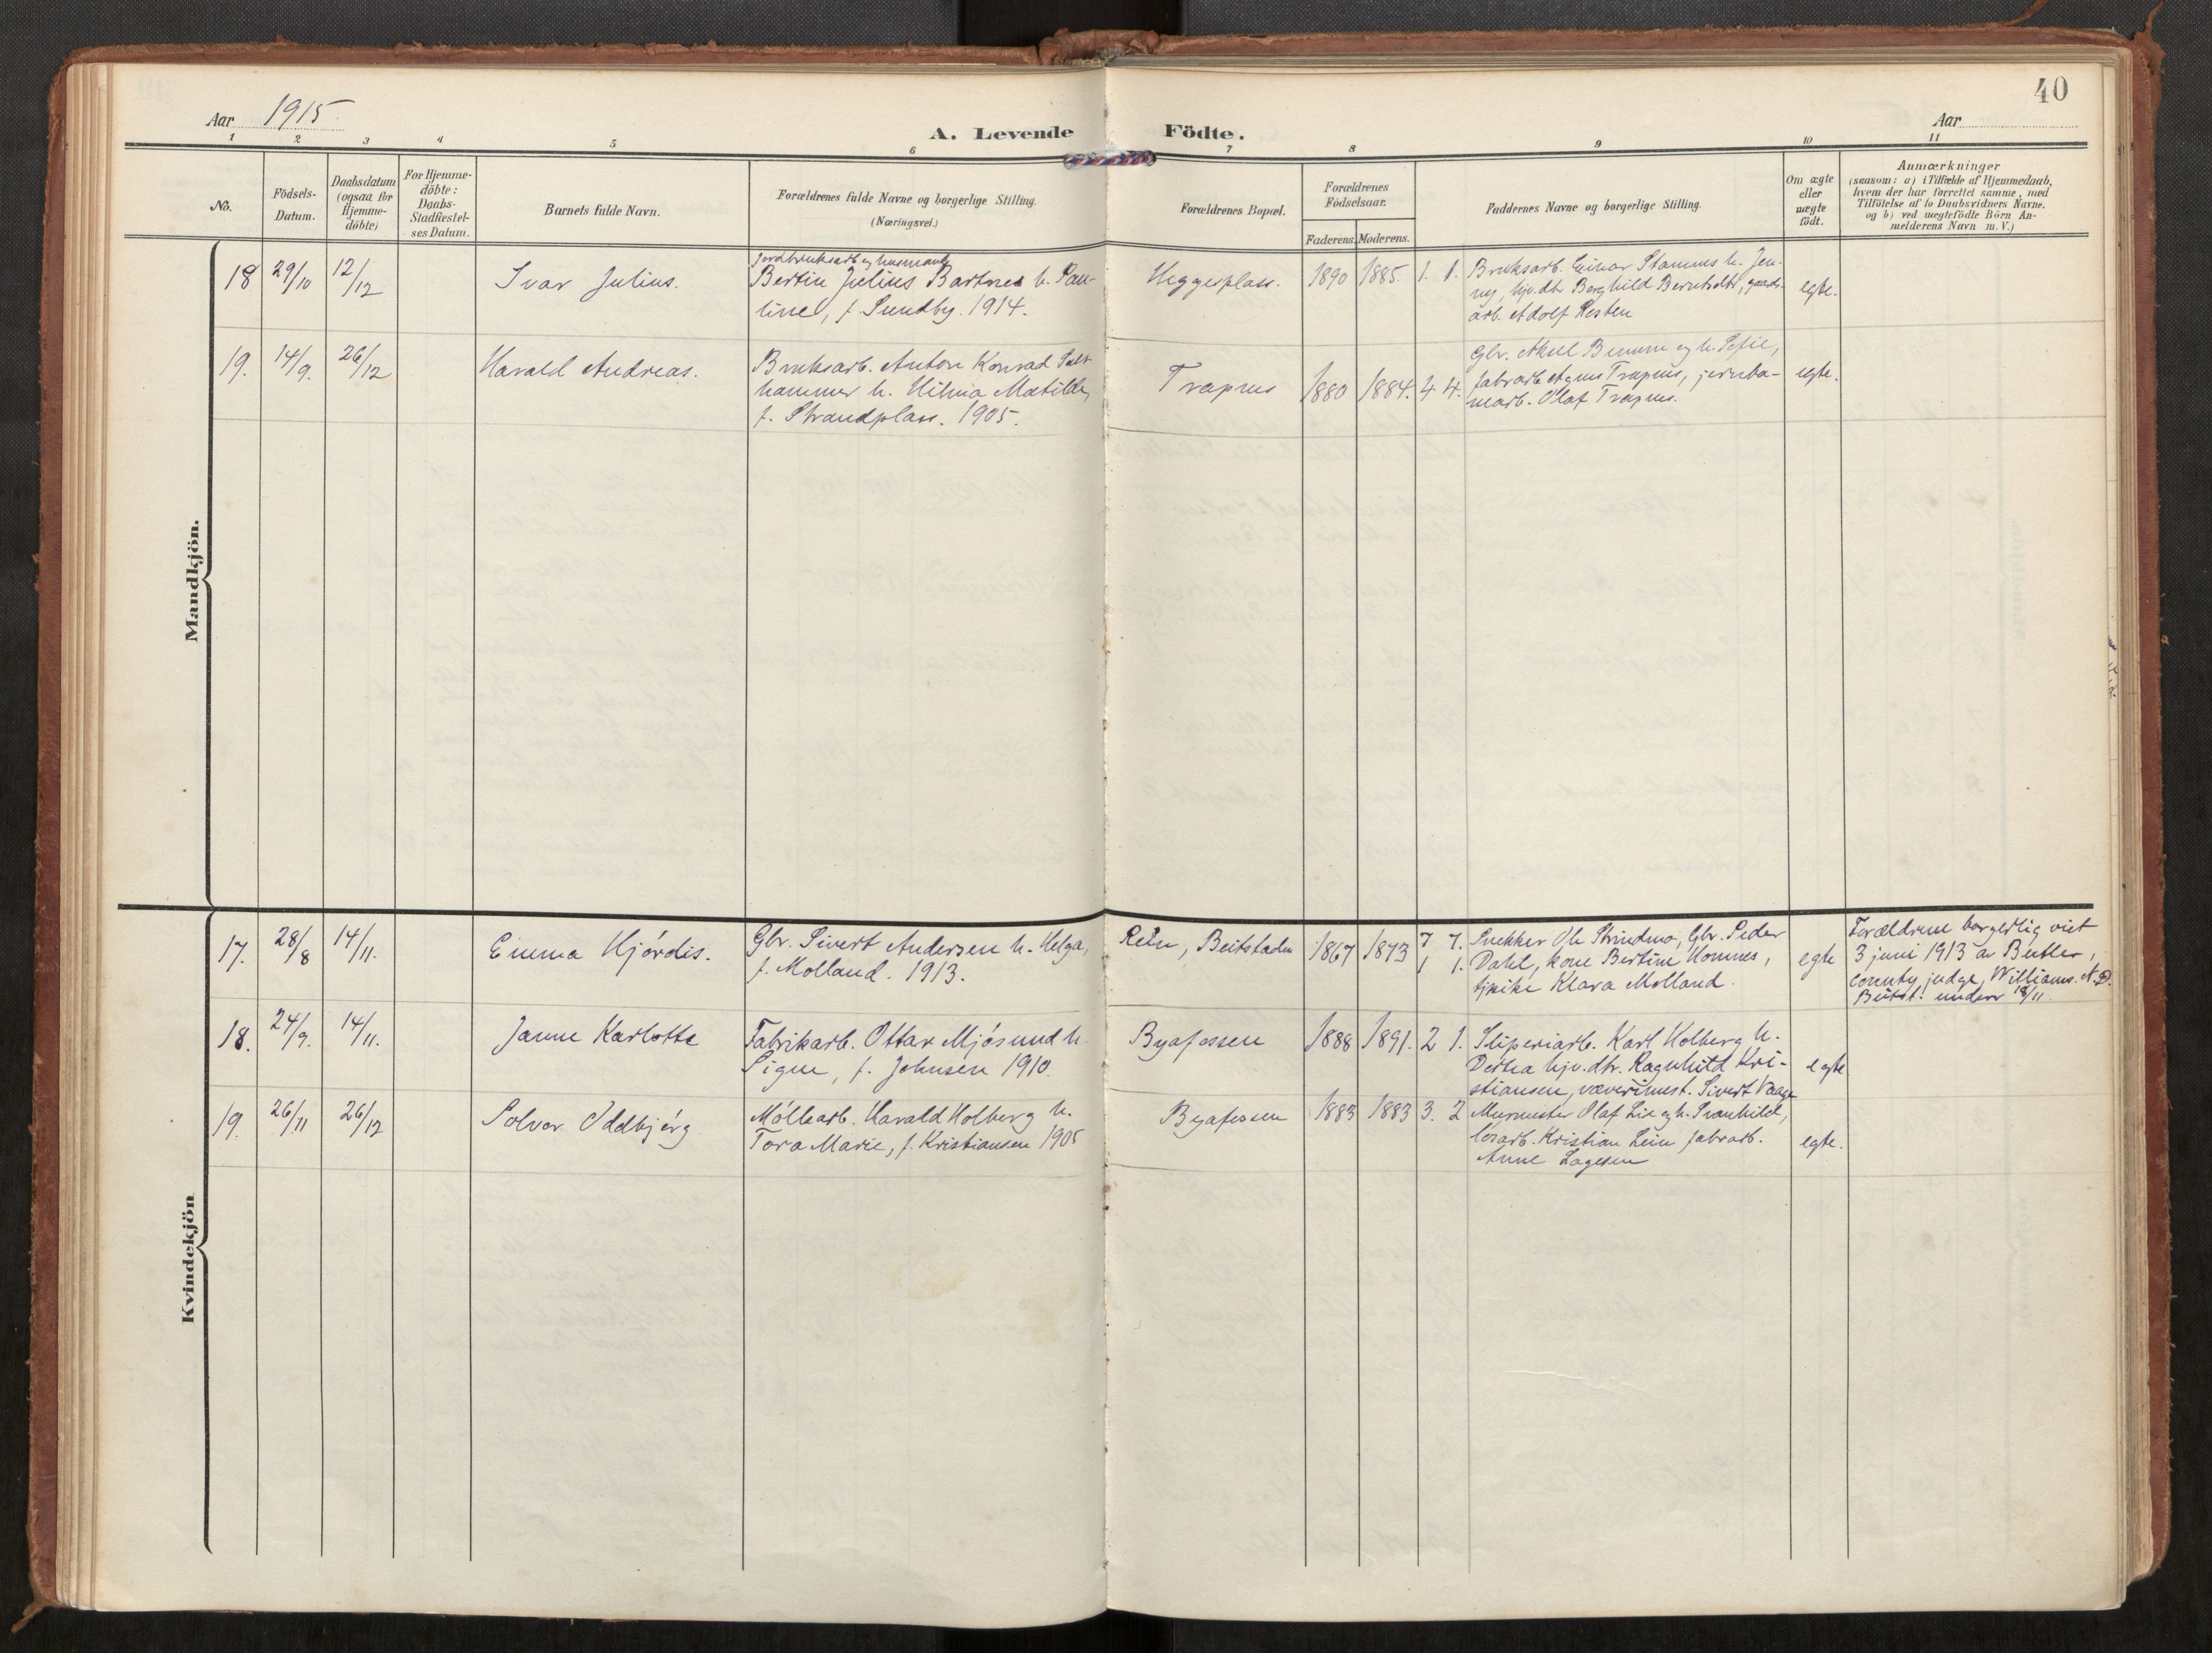 40
Aar 1915.
A. Levende Födte.
Aar
1 2 3 4 5 6 7 8 9 10 11
No.
Födsels-
Datum.
Daabsdatum
(ogsaa for
Hjemme-
döbte)
For Hjemme-
döbte:
Daabs-
Stadfæstel-
ses Datum.
Barnets fulde Navn.
Forældrenes fulde Navne og borgerlige Stilling.
(Næringsvei.)
Forældrenes Bopæl.
Forældrenes
Födselsaar.
Faderens. Moderens.
Faddernes Navne og borgerlige Stilling.
Om ægte
eller
uægte
födt.
Anmærkninger
(saasom: a) i Tilfælde af Hjemmedaab,
hvem der har forrettet samme, med
Tilföielse af to Daabsvidners Navne,
og b) ved uægtefödte Börn An-
melderens Navn m. V.)
Mandkjön.
18 29/10 12/12
Ivar Julius.
jordbruksarb. og husmand
Bertin Julius Bartnes h. Pau-
line, f. Sundby. 1914.
Heggesplass.
1890 1885. 1. 1.
Bruksarb. Einar Stamnes h. Jen-
ny, hjv. dtr Borghild Berntsdtr, gaards-
arb. Adolf Resten
egte.
19. 14/9. 26/12
Harald Andreas.
Bruksarb. Anton Konrad Salt
hammer h. Hilma Matilde,
f. Strandplass. 1905.
Trapnes
1880 1884. 4 4.
Gbr. Aksel Benum og h. Sofie,
fabrarb. Agnes Trapnes, jernba-
nearb. Olaf Trapnes.
egte.
Kvindekjön
17. 28/8 14/11.
Emma Hjördis.
Gbr. Sivert Andersen h. Helga,
f. Molland. 1913.
Rein, Beitstaden
1867 1873 7 7.
1 1.
Snekker Ole Strindmo, Gbr. Peder
Dahl, kone Bertine Homnes,
tjpike Klara Molland.
egte
Forældrene borgerlig viet
3 juni 1913 av Butler,
County judge, Williams. N.D.
Beitst. underr 18/11.
18. 24/9. 14/11.
Janne Karlotte
Fabrikarb. Ottar Mjösund h.
Signe, f. Johnsen 1910.
Byafossen
1888 1891. 2 1.
Sliperiarb. Karl Holberg h.
Dortea hjv. dtr. Ragnhild Kri-
stiansen, væverimest. Sivert Vaage
egte
19. 26/11 26/12
Solvor Oddbjörg
Möllearb. Harald Holberg h.
Tora Marie, f. Kristiansen 1905
Byafossen
1883 1883 3. 2
Murmester Olaf Lie og h. Svanhild,
Kristian Lein fabrarb.
Anne Lagesen
egte.